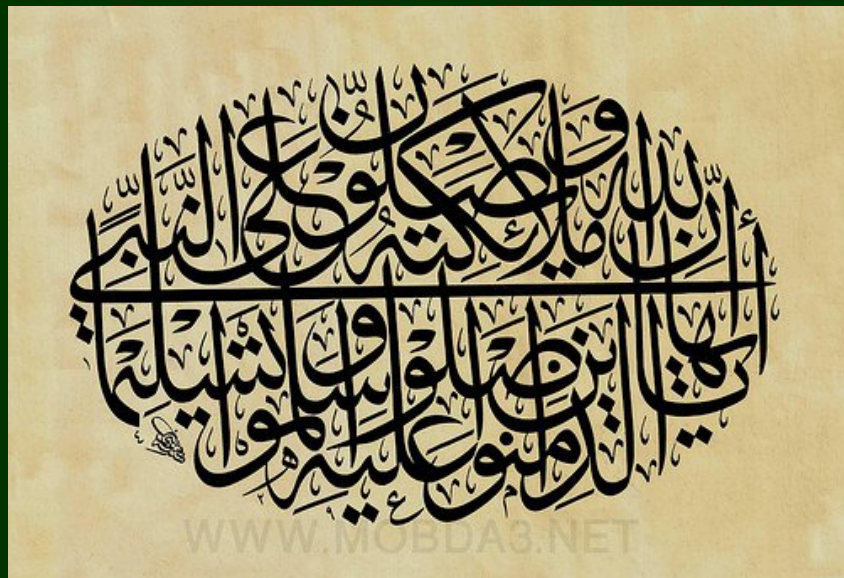 إن الله وملائكته يصلون على النبي
يا أيها الذين آمنوا صلوا عليه وسلموا تسليما
WWW.MOBDA3.NET